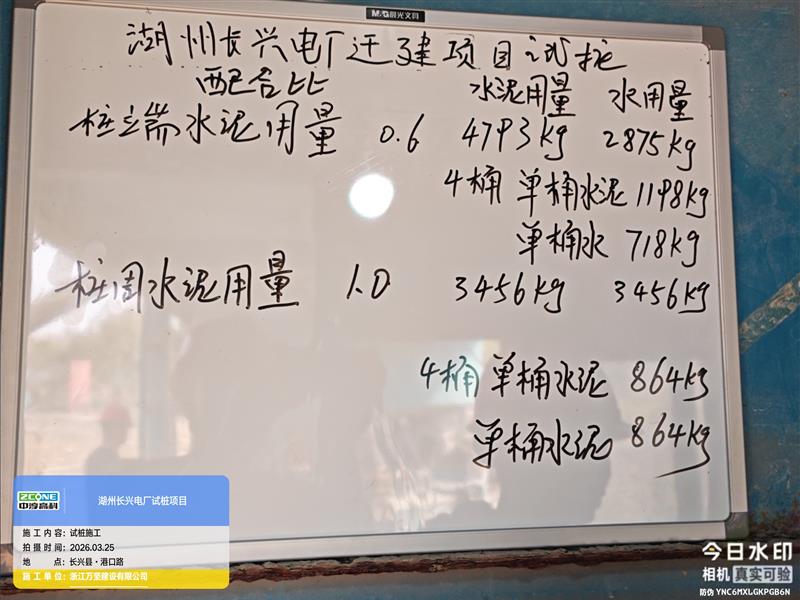 M&G晨光文具
湖州长兴电厂迁建项目试桩
配合比 水泥用量 水用量
桩端水泥用量 0.6 4793kg 2875kg
4桶 单桶水泥 1198kg
单桶水 718kg
桩周水泥用量 1.0 3456kg 3456kg
4桶 单桶水泥 864kg
单桶水泥 864kg
ZCONE
中淳高科
湖州长兴电厂试桩项目
施工内容: 试桩施工
拍摄时间: 2026.03.25
地点: 长兴县·港口路
施工单位: 浙江万坚建设有限公司
今日水印
相机 真实可验
防伪 YNC6MXLGKPGB6N